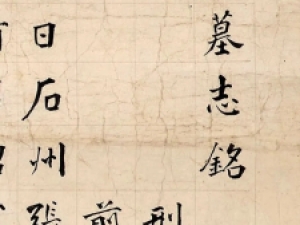 墓志銘
刑
前
日石州張